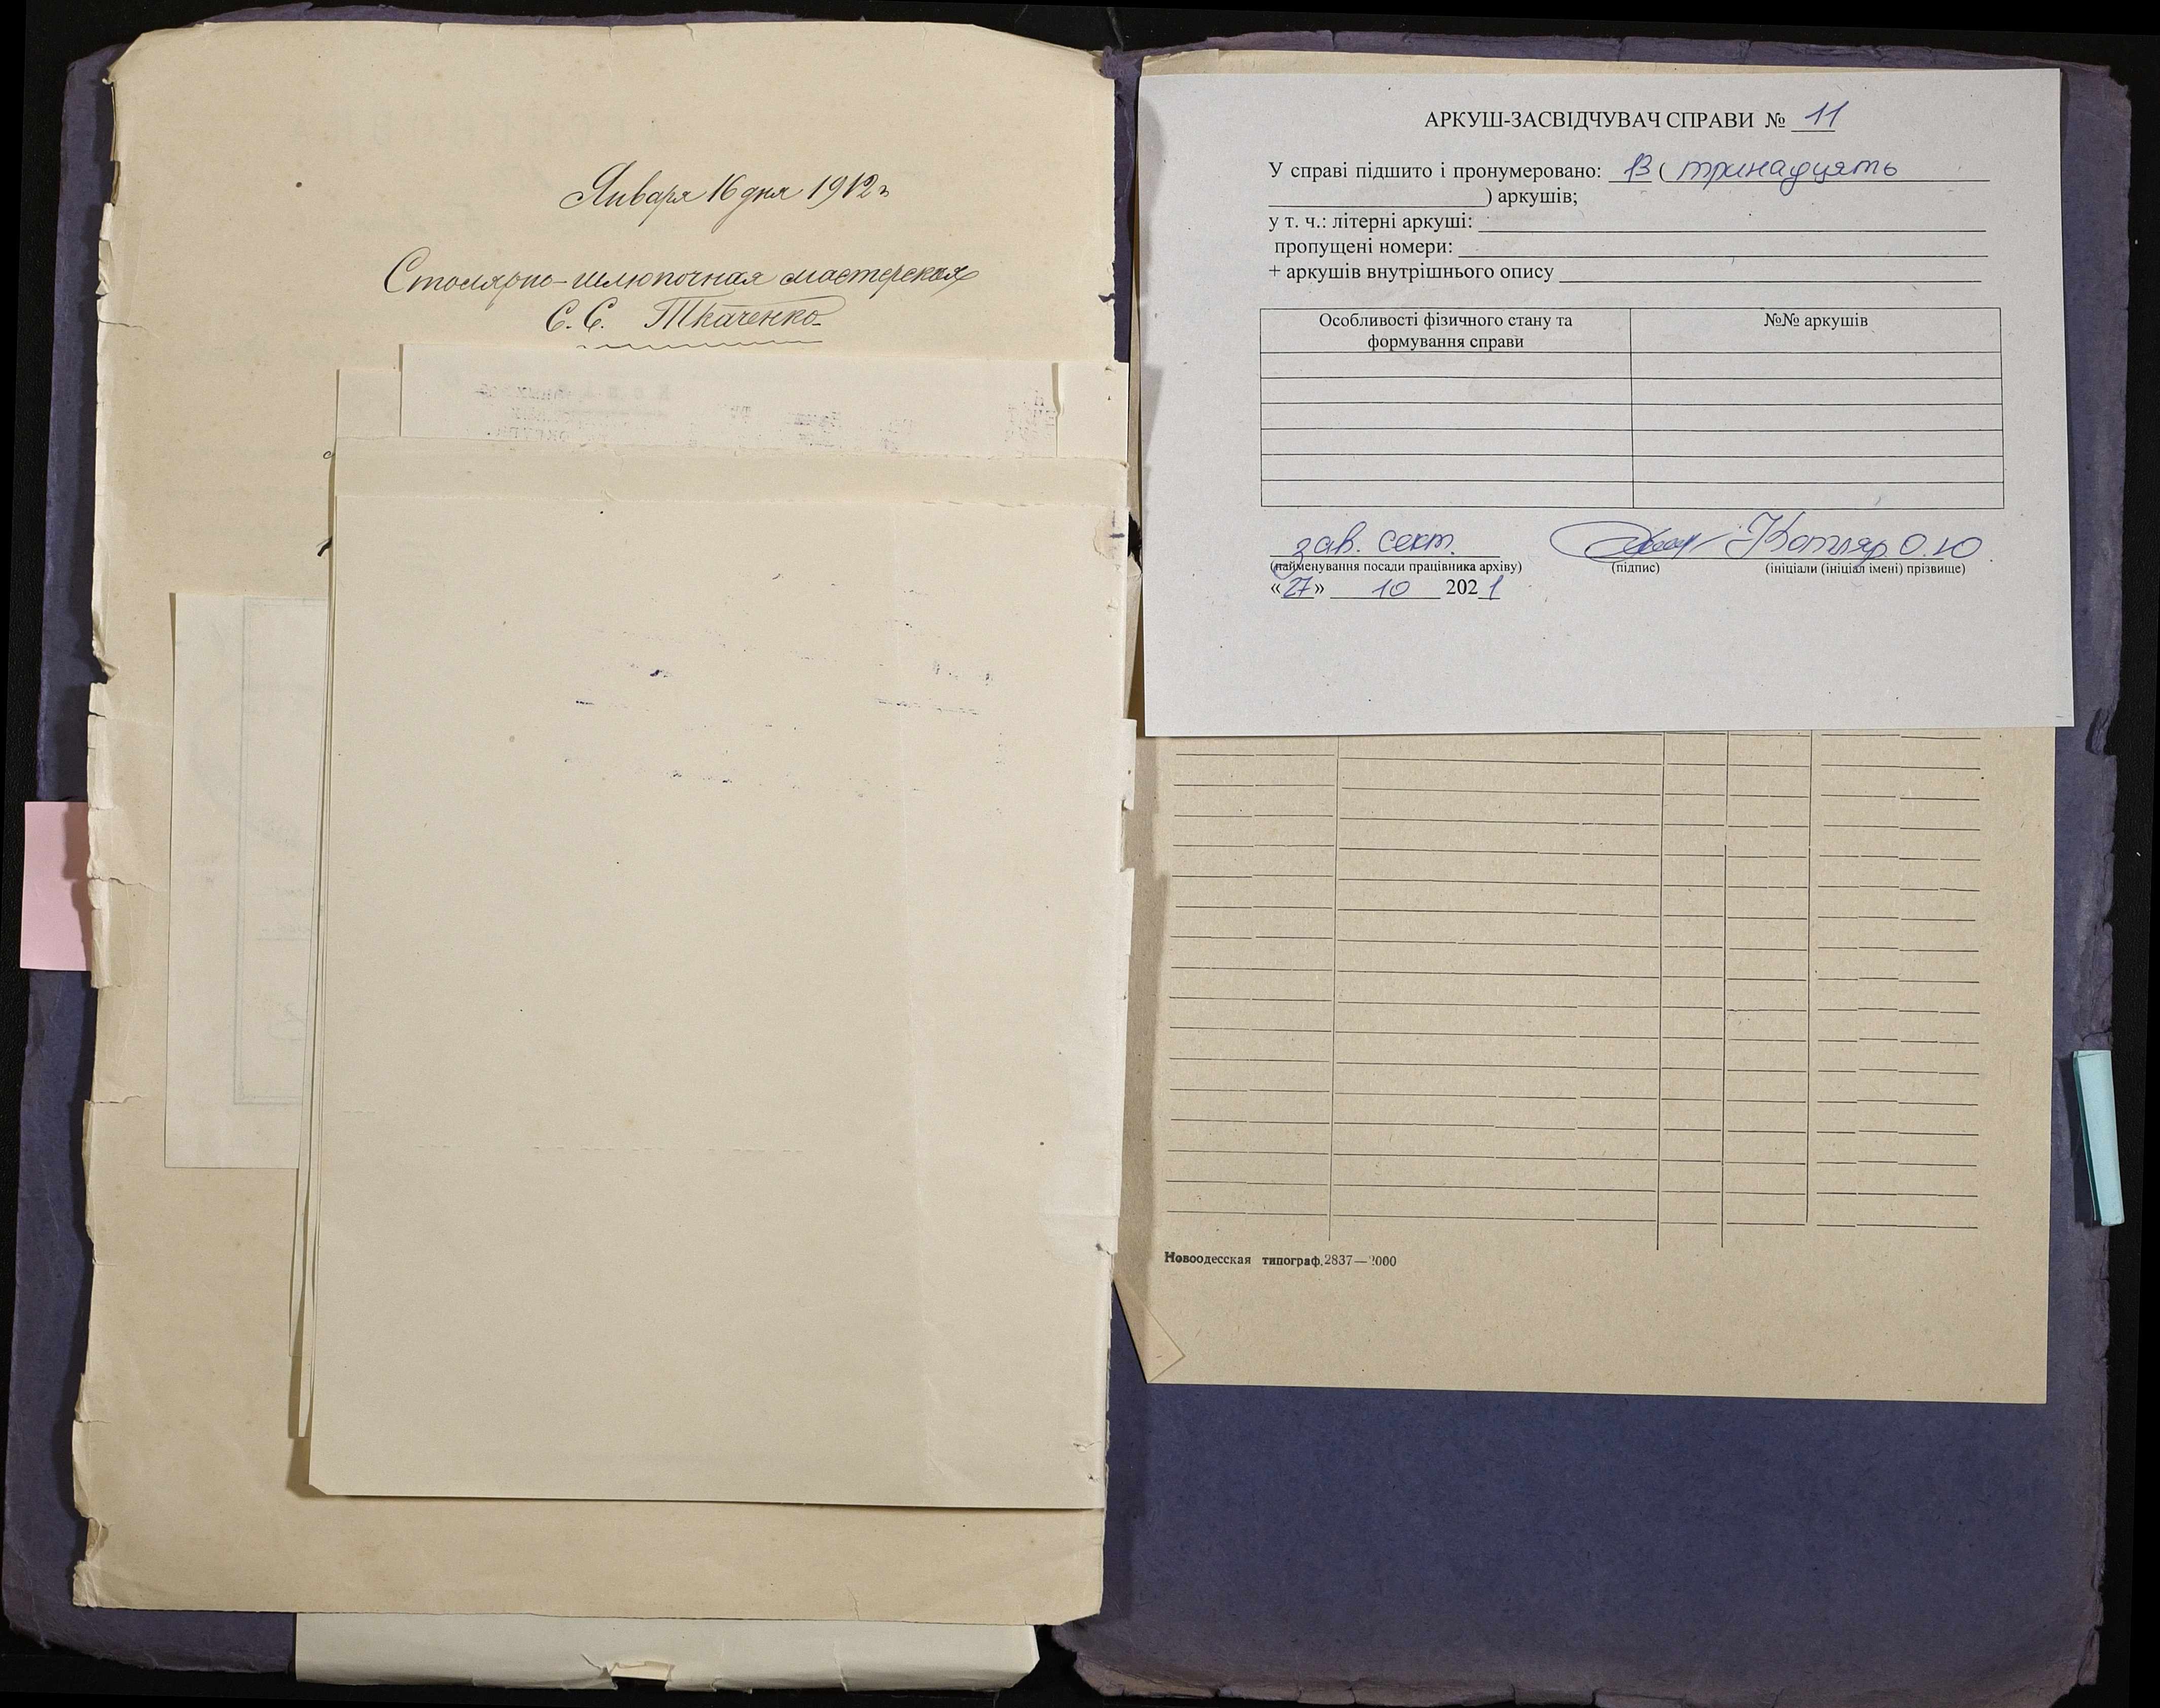 Января 16 дня 1912 г
Столярно-шлюпочная мастерская
С. С. Ткаченко
АРКУШ-ЗАСВІДЧУВАЧ СПРАВИ № 11
У справі підшито і пронумеровано: 13 ( тринадцять
) аркушів;
у т. ч.: літерні аркуші:
пропущені номери:
+ аркушів внутрішнього опису
Особливості фізичного стану та формування справи
№№ аркушів
зав. сект. Котляр О.Ю
(найменування посади працівника архіву) (підпис) (ініціали (ініціал імені) прізвище)
«27» 10 2021
Новоодесская типограф. 2837—2000